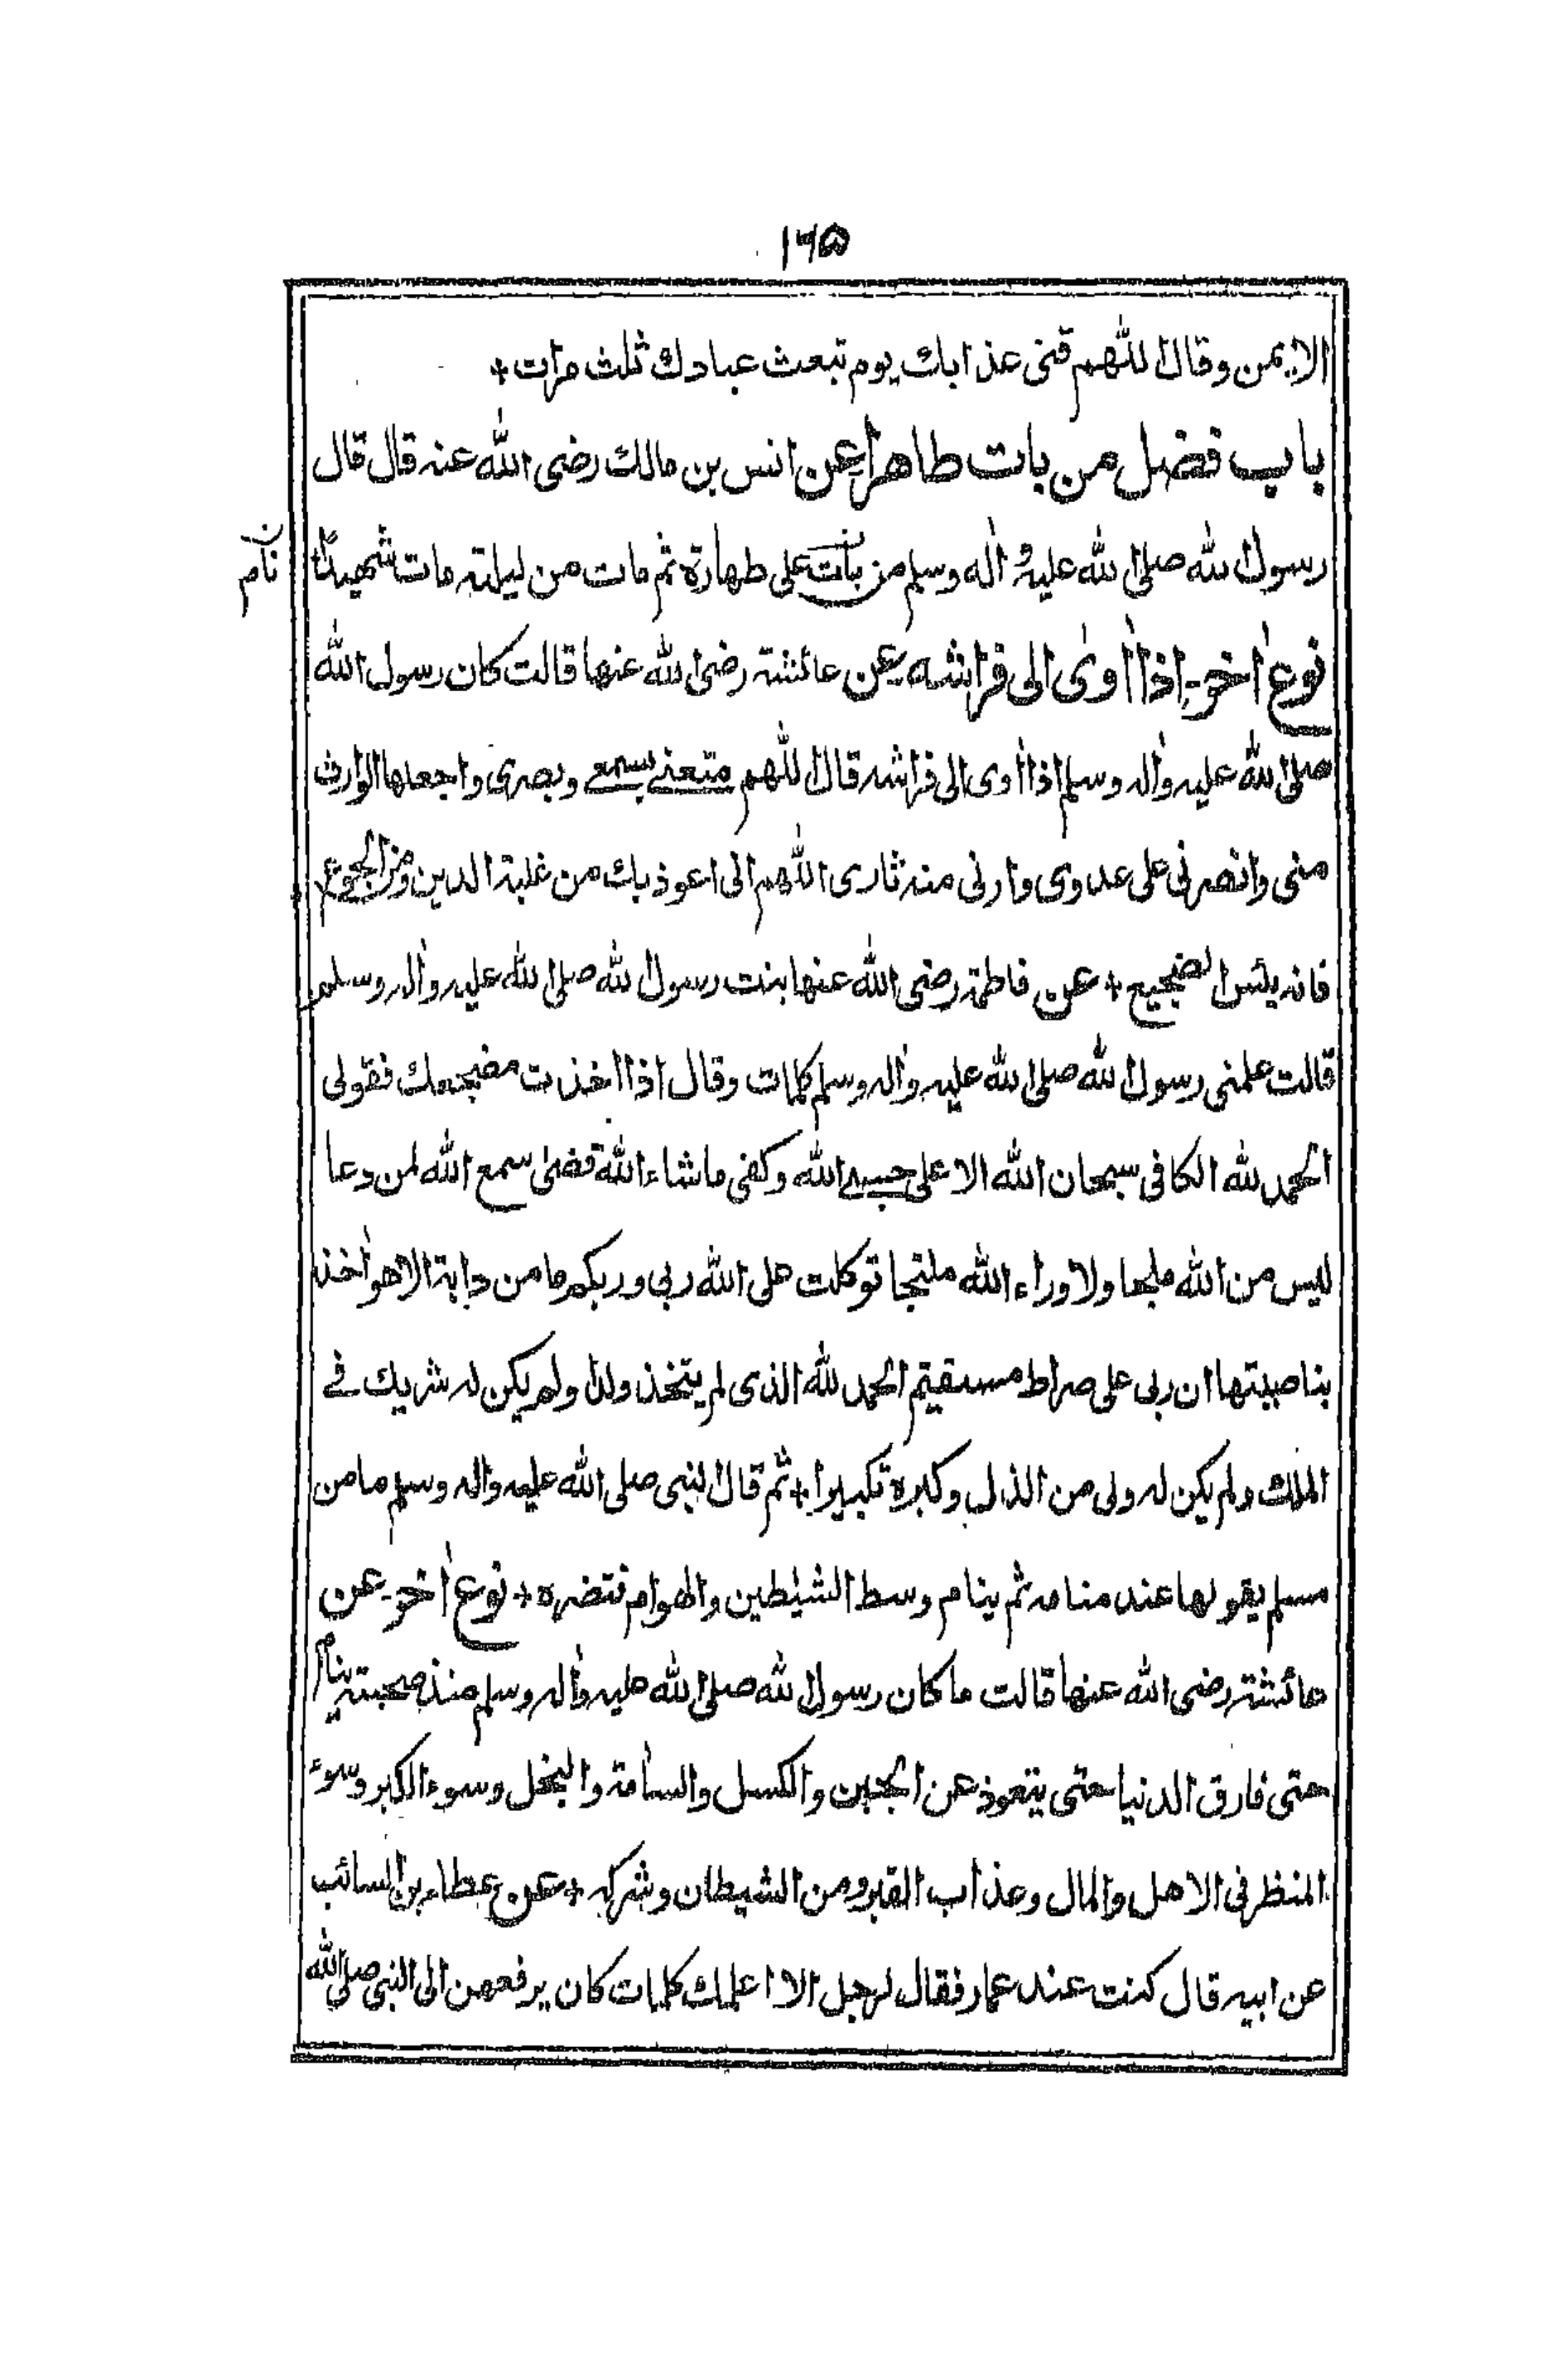 ۱۶۵
الايمن وقال اللهم قنى عذابك يوم تبعث عبادك ثلث مرات +
باب فضل من بات طاهرا عن انس بن مالك رضى الله عنه قال قال
رسول الله صلى الله عليه واٰله وسلم من بات على طهارة ثم مات من ليلته مات شهيدًا
ن نام
نوع اٰخر ـ اذا اوىٰ الى فراشه ـ عن عائشة رضى الله عنها قالت كان رسول الله
صلى الله عليه واٰله وسلم اذا اوى الى فراشه قال اللهم متعنے بسمعے وبصرى واجعلها الوارث
منى وانصرنى على عدوى وارنى منه ثارى اللهم انى اعوذ بك من غلبة الدين ومن الجوع
فانه بئس الضجيع + عن فاطمة رضى الله عنها بنت رسول الله صلى الله عليه واٰله وسلم
قالت علمنى رسول الله صلى الله عليه واٰله وسلم كلمات وقال اذا اخذت مضجعك فقولى
الحمد لله الكافى سبحان الله الاعلى حسبے الله وكفى ماشاء الله قضىٰ سمع الله لمن دعا
ليس من الله ملجا ولا وراء الله ملتجا توكلت على الله ربى وربكم ما من دابة الا هو اٰخذ
بناصيتها ان ربى على صراط مستقيم الحمد لله الذى لم يتخذ ولدا ولم يكن له شريك فے
الملك ولم يكن له ولى من الذل وكبره تكبيرا + ثم قال النبى صلى الله عليه واٰله وسلم ما من
مسلم يقولها عند منامه ثم ينام وسط الشيٰطين والهوام فتضره + نوع اٰخر ـ عن
عائشة رضى الله عنها قالت ما كان رسول الله صلى الله عليه واٰله وسلم منذ صحبته ينام
حتى فارق الدنيا حتى يتعوذ عن الجبن والكسل والساٰمة والبخل وسوء الكبر وسوء
المنظر فى الاهل والمال وعذاب القبر ومن الشيطان وشركه + عن عطاء بن السائب
عن ابيه قال كنت عند عمار فقال لرجل الا اعلمك كلمات كان يرفعهن الى النبى صلى الله